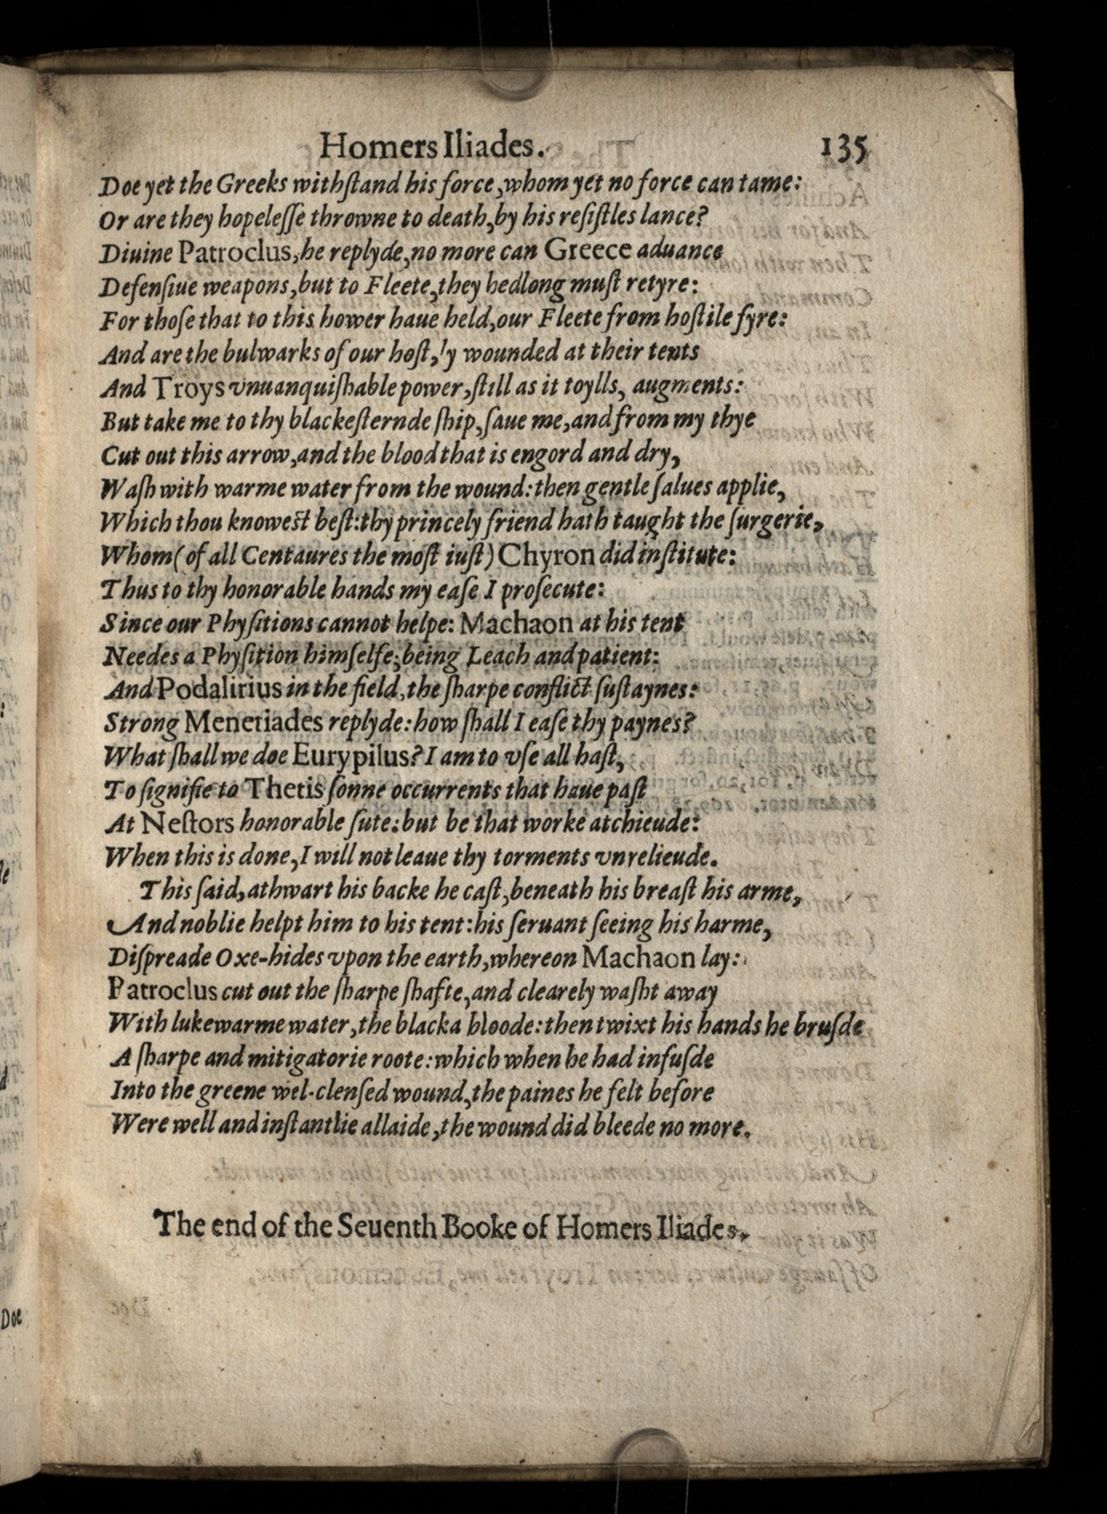 Homers Iliades. 135
Doe yet the Greeks withſtand his force, whom yet no force can tame:
Or are they hopeleſſe throwne to death, by his reſiſtles lance?
Diuine Patroclus, he replyde, no more can Greece aduance
Defenſiue weapons, but to Fleete, they hedlong muſt retyre:
For thoſe that to this hower haue held, our Fleete from hoſtile fyre:
And are the bulwarks of our hoſt, ly wounded at their tents
And Troys vnuanquiſhable power, ſtill as it toylls, augments:
But take me to thy blackeſternde ſhip, ſaue me, and from my thye
Cut out this arrow, and the blood that is engord and dry,
Waſh with warme water from the wound: then gentle ſalues applie,
Which thou knoweſt beſt: thy princely friend hath taught the ſurgerie,
Whom (of all Centaures the moſt iuſt) Chyron did inſtitute:
Thus to thy honorable hands my eaſe I proſecute:
Since our Phyſitions cannot helpe: Machaon at his tent
Needes a Phyſition himſelfe; being Leach and patient:
And Podalirius in the field, the ſharpe conflict ſuſtaynes:
Strong Menetiades replyde: how ſhall I eaſe thy paynes?
What ſhall we doe Eurypilus? I am to vſe all haſt,
To ſignifie to Thetis ſonne occurrents that haue paſt
At Neſtors honorable ſute: but be that worke atchieude:
When this is done, I will not leaue thy torments vnrelieude.
This ſaid, athwart his backe he caſt, beneath his breaſt his arme,
And noblie helpt him to his tent: his ſeruant ſeeing his harme,
Diſpreade Oxe-hides vpon the earth, whereon Machaon lay:
Patroclus cut out the ſharpe ſhafte, and clearely waſht away
With lukewarme water, the blacka bloode: then twixt his hands he bruſde
A ſharpe and mitigatorie roote: which when he had infuſde
Into the greene wel-clenſed wound, the paines he felt before
Were well and inſtantlie allaide, the wound did bleede no more.
The end of the Seuenth Booke of Homers Iliades.
Doe